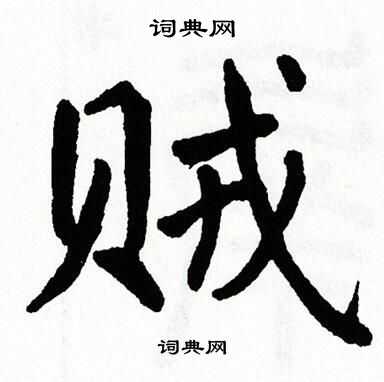 词典网
贼
词典网